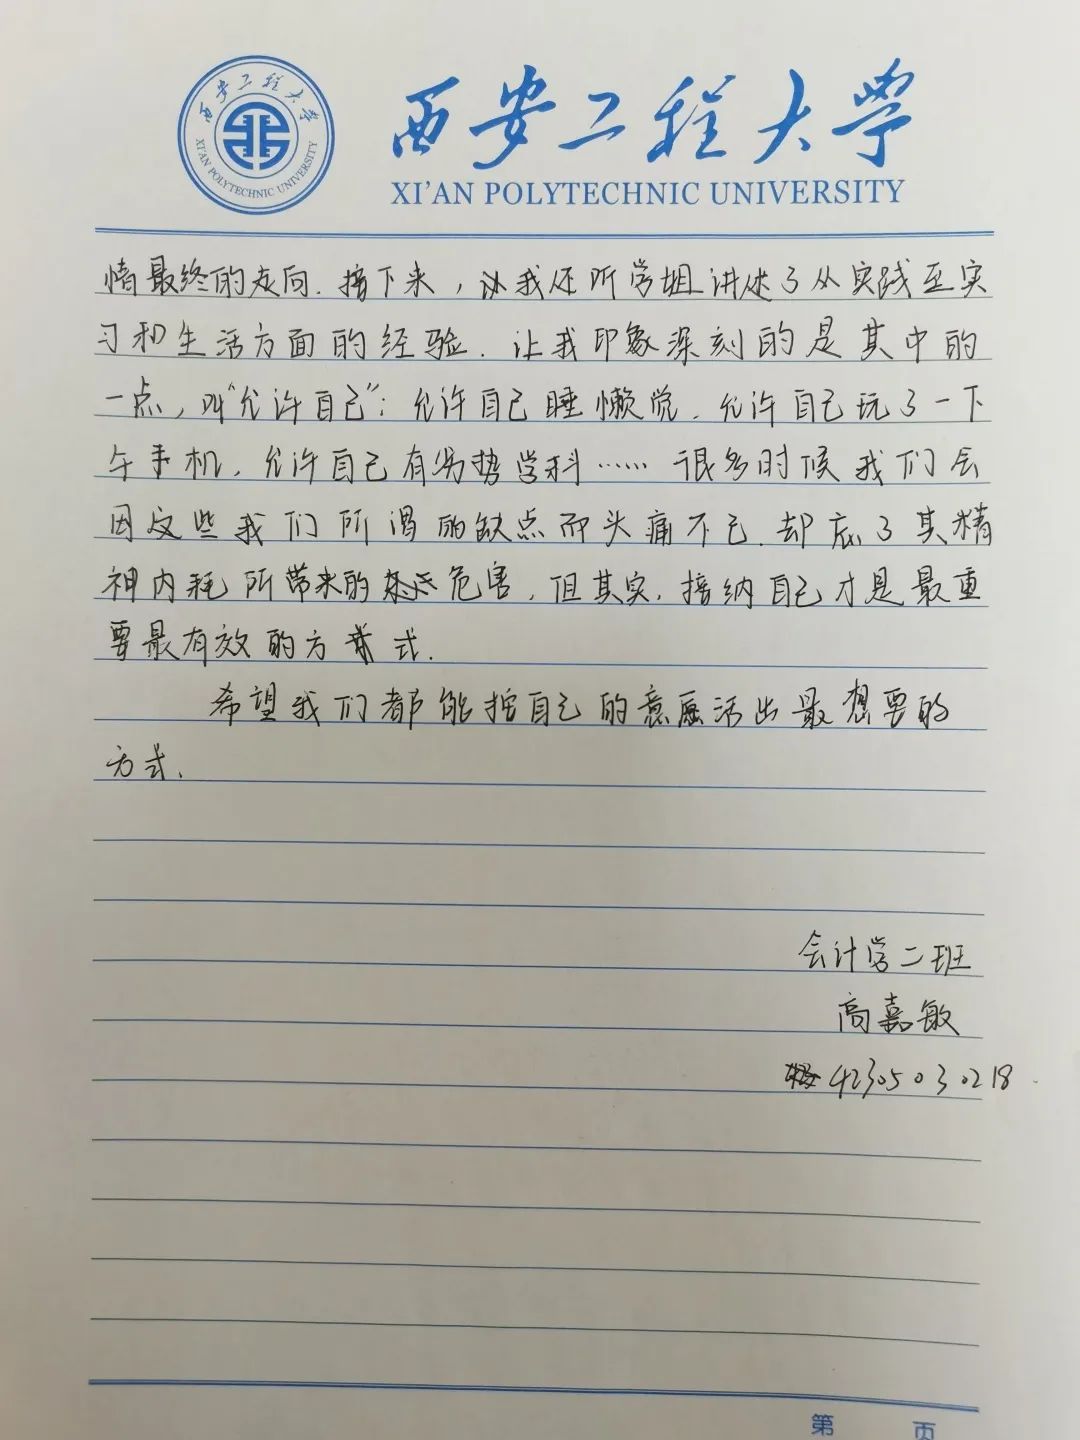 西安工程大学
XI'AN POLYTECHNIC UNIVERSITY
西安工程大学
XI'AN POLYTECHNIC UNIVERSITY
情最终的走向.接下来,我还听学姐讲述了从实践至实
习和生活方面的经验.让我印象深刻的是其中的
一点,叫“允许自己”;允许自己睡懒觉.允许自己玩了一下
午手机,允许自己有劣势学科……很多时候我们会
因这些我们所谓的缺点而头痛不已.却忘了其精
神内耗所带来的危害,但其实,接纳自己才是最重
要最有效的方式.
希望我们都能按自己的意愿活出最想要的
方式.
会计学二班
高嘉敏
42305030218
第 页